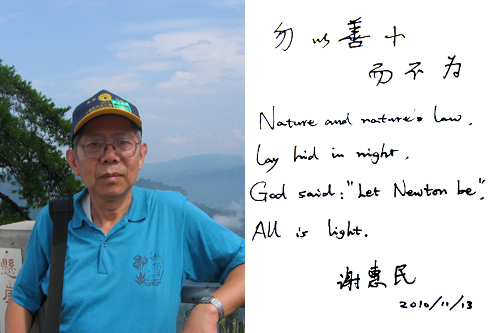 勿以善小
而不为
Nature and nature's law,
Lay hid in night,
God said: "Let Newton be",
All is light.
谢惠民
2010/11/13